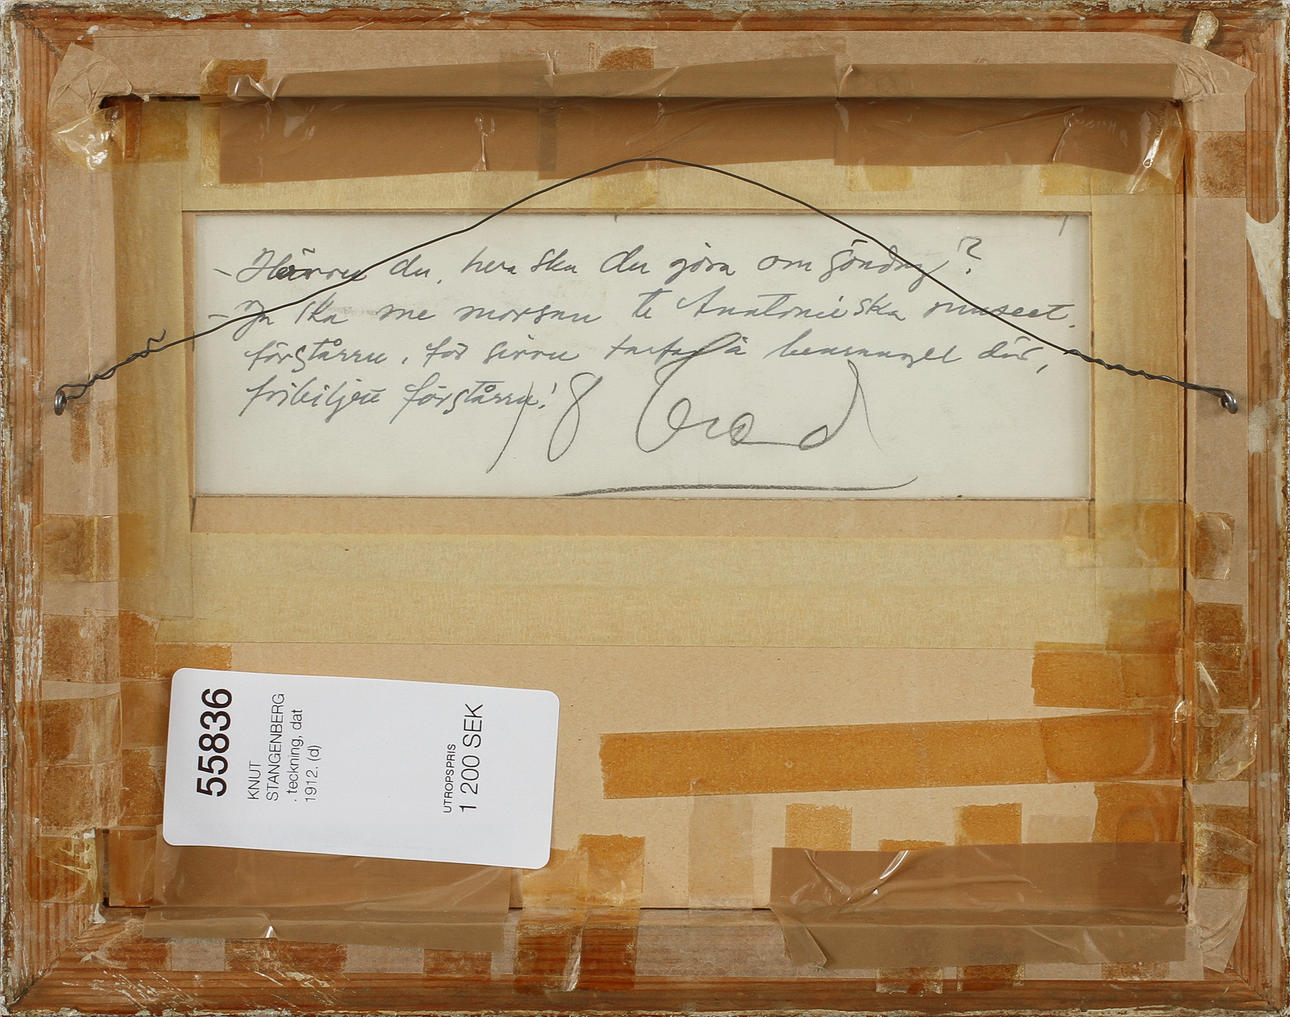 - Hörru du, hva ska du göra om söndag?
- Ja ska me morsan te Anatomiska museet,
förstårru, för sirru farfar ä benrangel där,
fribiljett förstårru!
18
55836
KNUT
STANGENBERG
. teckning, dat
1912. (d)
UTROPSPRIS
1 200 SEK